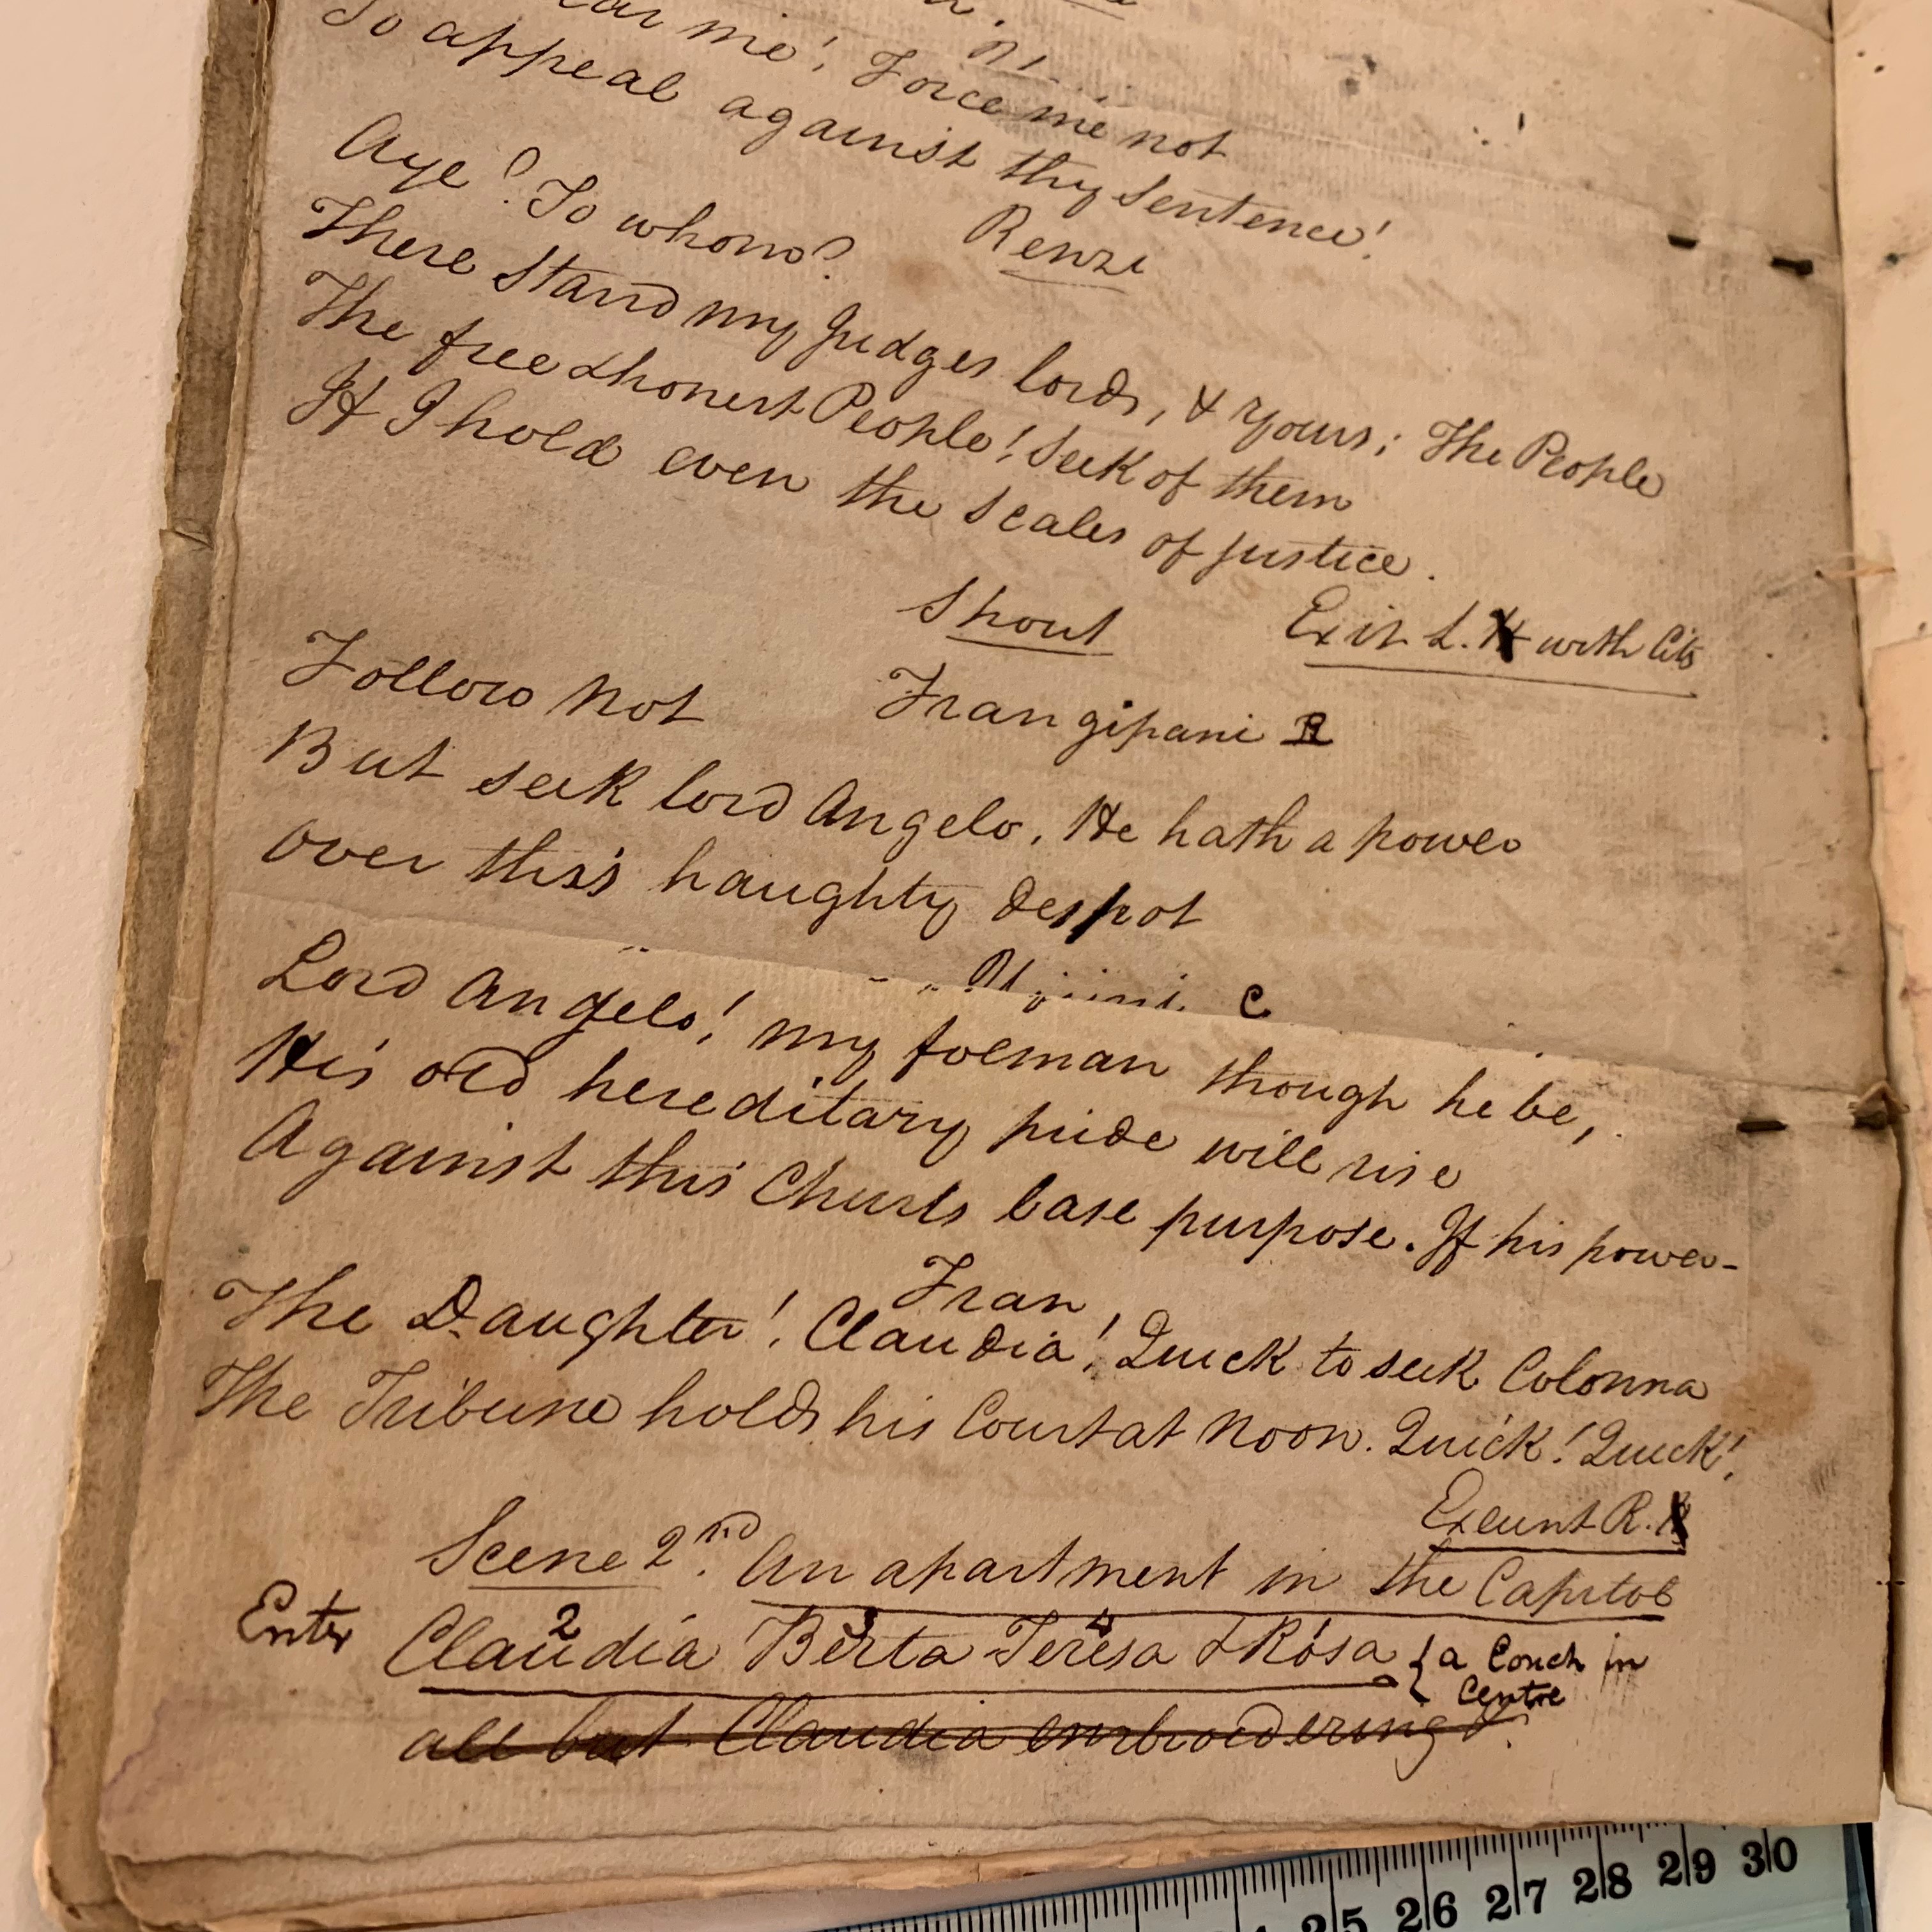 me! Force me not
To appeal against thy Sentence!
Renzi
Aye? To whom?
There stand my Judges lords, & yours; The People
The free & honest People! Seek of them
If I hold even the scales of justice.
Shout Exit L. with Cits
Frangipani R
Follow Not
But seek lord Angelo, He hath a power
over this haughty despot
C
Lord Angelo! my foeman though he be,
His old hereditary pride will rise
Against this Churls base purpose. If his power-
Fran
The Daughter! Claudia! Quick to seek Colonna
The Tribune holds his Court at Noon. Quick! Quick!
Exeunt R.
Scene 2nd. An apartment in the Capitol
Enter Claudia 2 Berta 3 Teresa 4 & Rosa { a Couch in
Centre
all but Claudia embroidering
25 26 27 28 29 30